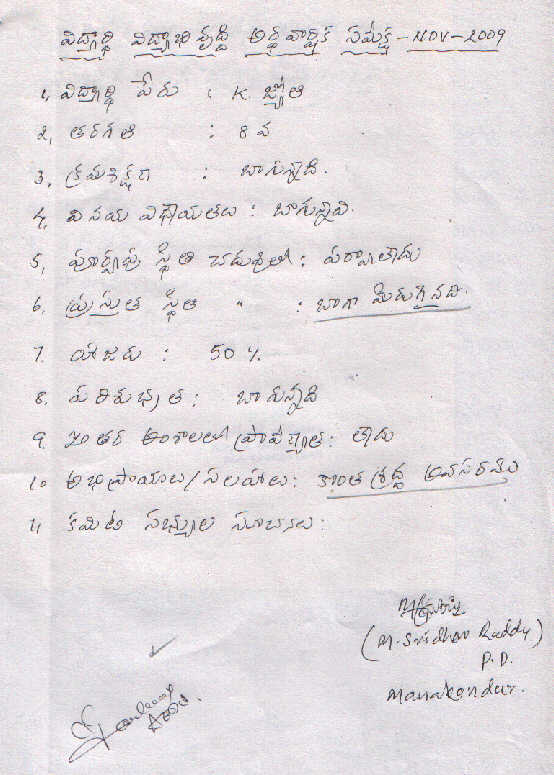 విద్యార్థి విద్యాభివృద్ధి అర్థవార్షిక సమీక్ష - NOV-2009
1, విద్యార్థి పేరు : K. జ్యోతి
2, తరగతి : 8 వ
3. క్రమశిక్షణ : బాగున్నది.
4, వినయ విధేయతలు : బాగున్నవి.
5, పూర్వపు స్థితి చదువులో : పర్వాలేదు
6. ప్రస్తుత స్థితి " : బాగా మెరుగైనది.
7. హాజరు : 50 %
8. పరిశుభ్రత : బాగున్నది
9. ఇతర అంశాలలో ప్రావీణ్యత : లేదు
10. అభిప్రాయాలు/సలహాలు : కొంత శ్రద్ధ అవసరము
11, కమిటీ సభ్యుల సూచనలు :
(M. Sridhar Reddy)
P.D.
Manakondur.